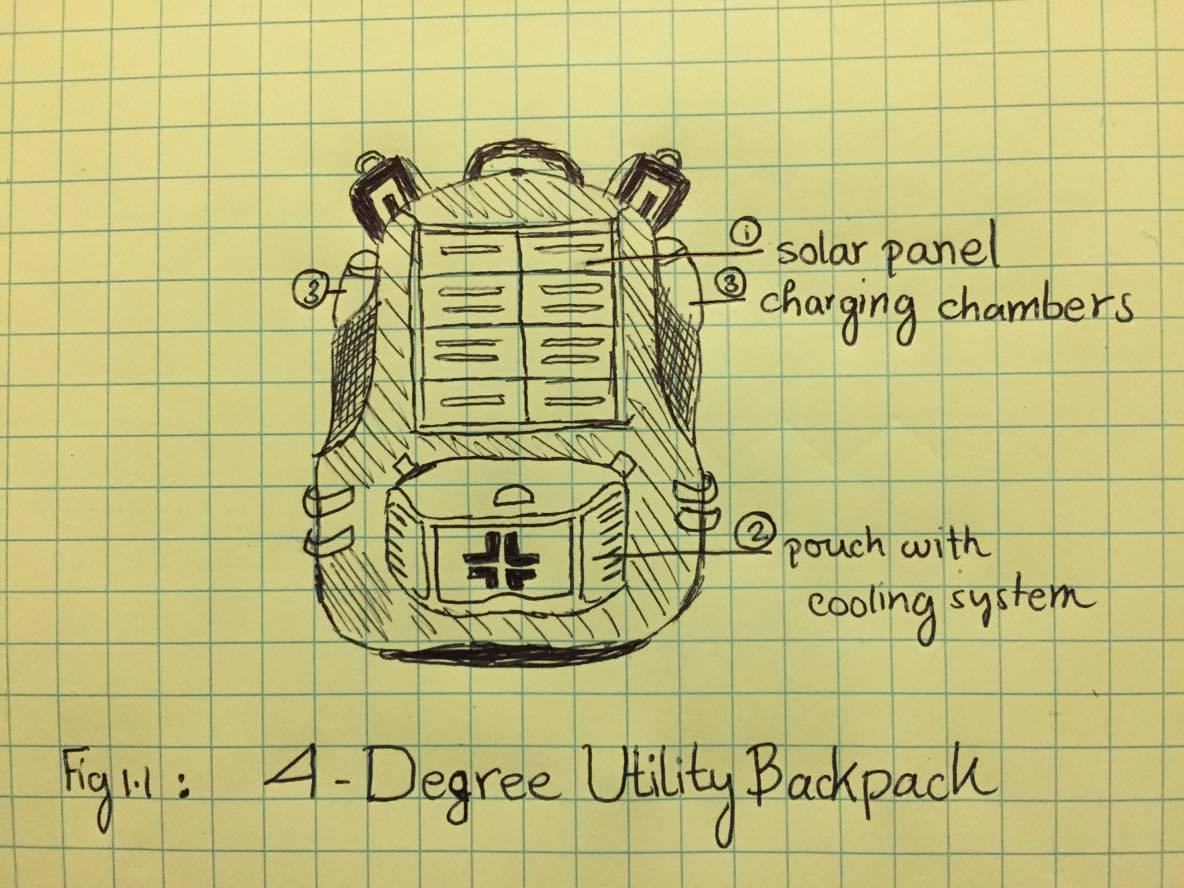 ① solar panel
③ ③ charging chambers
② pouch with
cooling system
Fig 1.1 : 4-Degree Utility Backpack